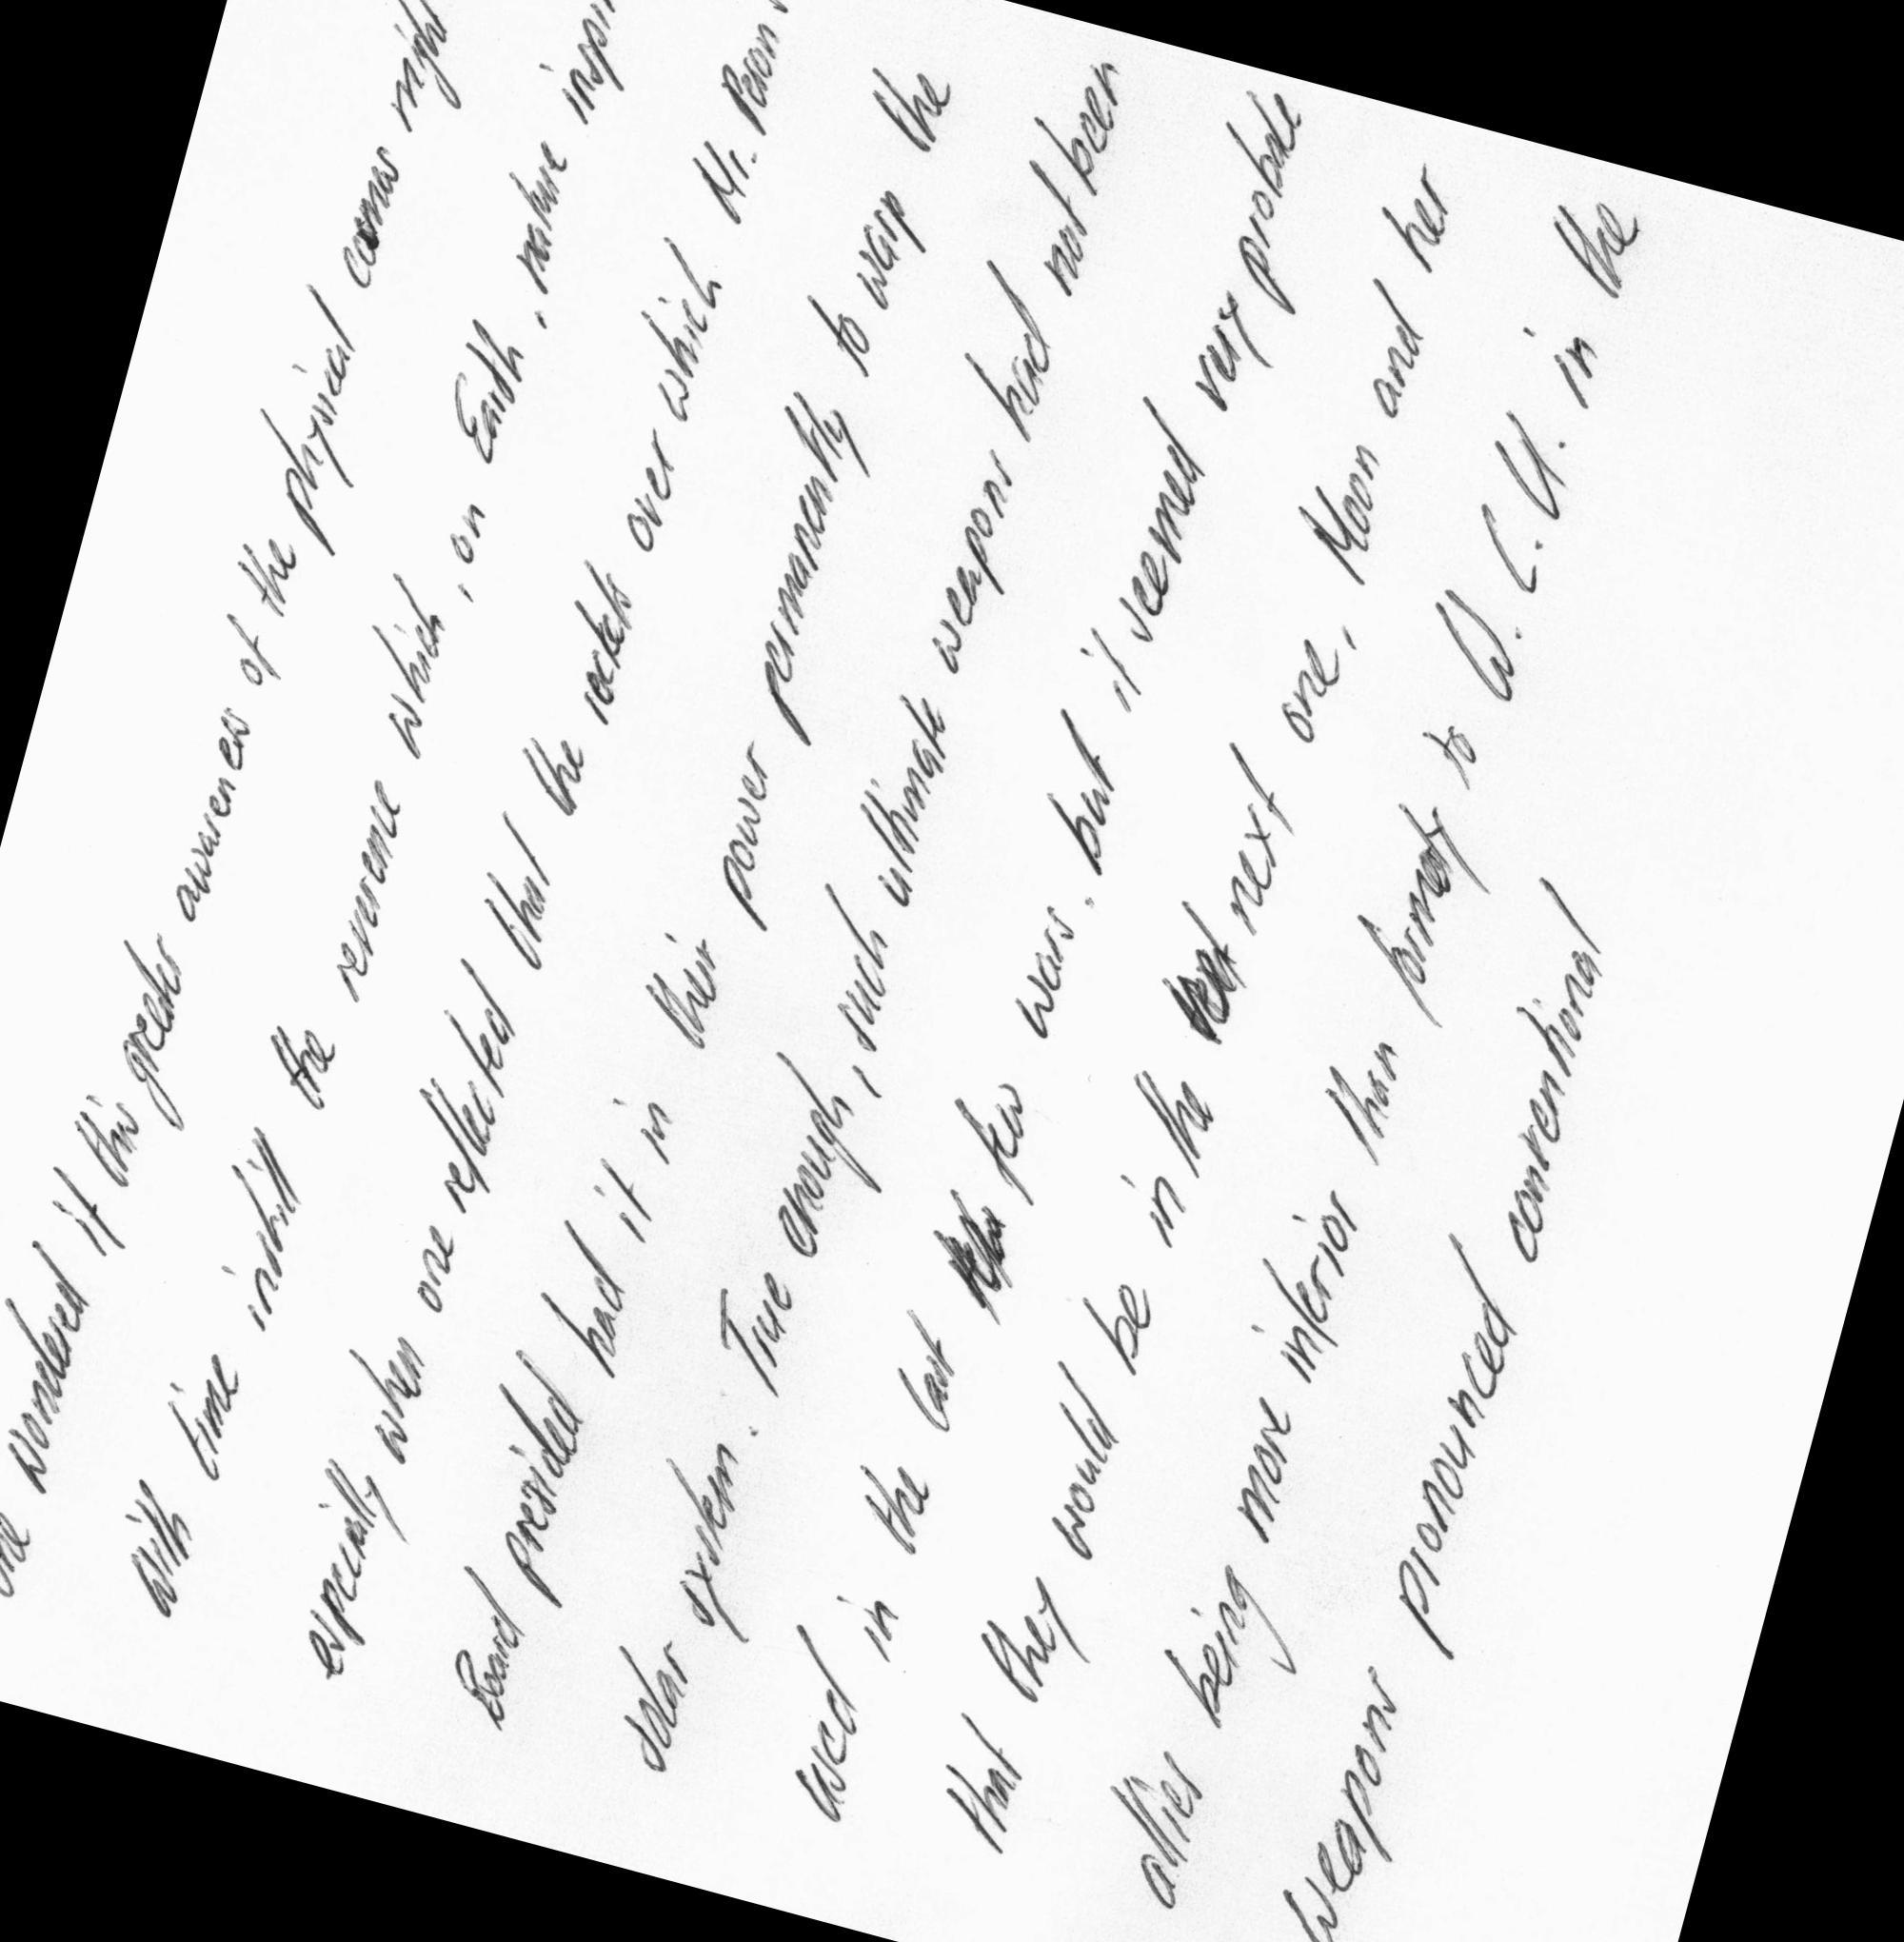 one wondered if this greater awareness of the physical cosmos might
with time instill the reverence which, on Earth, nature
especially when one reflected that the rockets over which Mr.
Board presided had it in their power permanently to warp the
solar system. True enough, such ultimate weapons had not been
used in the last few wars, but it seemed very probable
that they would be in the next one, Moon and her
allies being more inferior than formerly to W.C.U. in the
weapons pronounced conventional